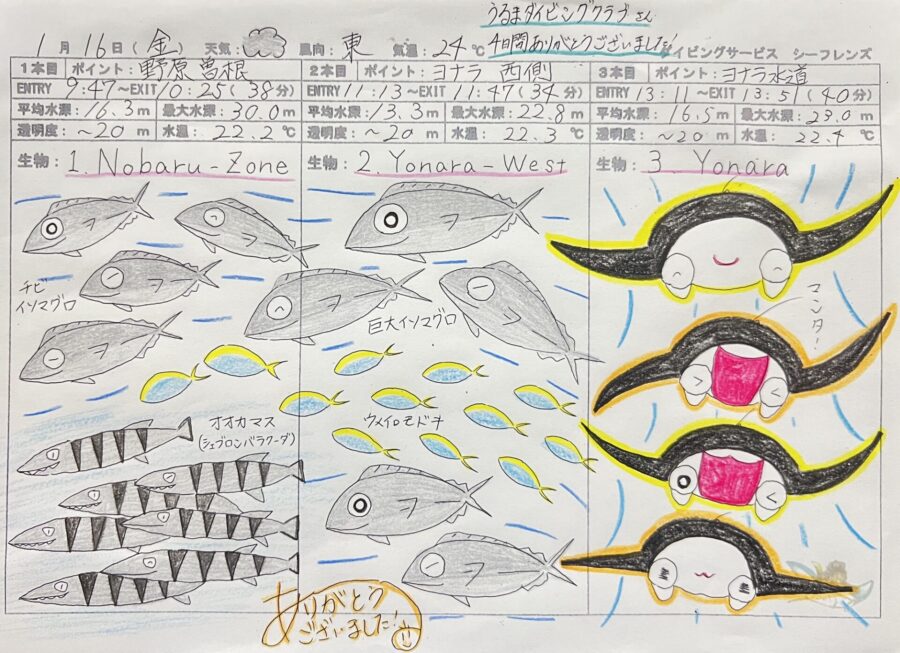 うるまダイビングクラブさん
4日間ありがとうございました!
1月16日(金) 天気: 風向:東 気温:24℃ ダイビングサービス シーフレンズ
1本目 ポイント:野原曽根
ENTRY 9:47~EXIT 10:25(38分)
平均水深:16.3m 最大水深:30.0m
透明度:~20m 水温:22.2℃
生物:1. Nobaru-Zone
チビ
イソマグロ
オオカマス
(シェブロンバラクーダ)
2本目 ポイント:ヨナラ 西側
ENTRY 11:13~EXIT 11:47(34分)
平均水深:13.3m 最大水深:22.8m
透明度:~20m 水温:22.3℃
生物:2. Yonara-West
巨大イソマグロ
ウメイロモドキ
3本目 ポイント:ヨナラ水道
ENTRY 13:11~EXIT 13:51(40分)
平均水深:16.5m 最大水深:23.0m
透明度:~20m 水温:22.4℃
生物:3. Yonara
マンタ!
ありがとう
ございました!